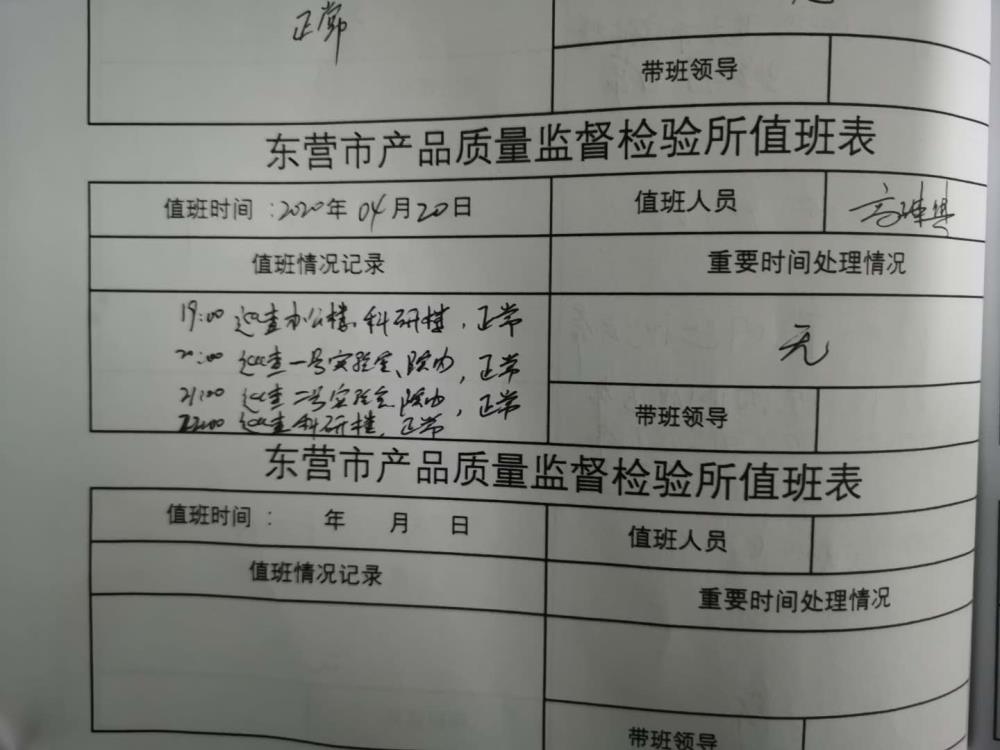 正常
带班领导
东营市产品质量监督检验所值班表
值班时间:2020年04月20日
值班人员
值班情况记录
重要时间处理情况
19:00 巡查办公楼、科研楼,正常
20:00 巡查一号实验室、院内,正常
21:00 巡查二号实验室、院内,正常
22:00 巡查科研楼,正常
无
带班领导
东营市产品质量监督检验所值班表
值班时间: 年 月 日
值班人员
值班情况记录
重要时间处理情况
带班领导